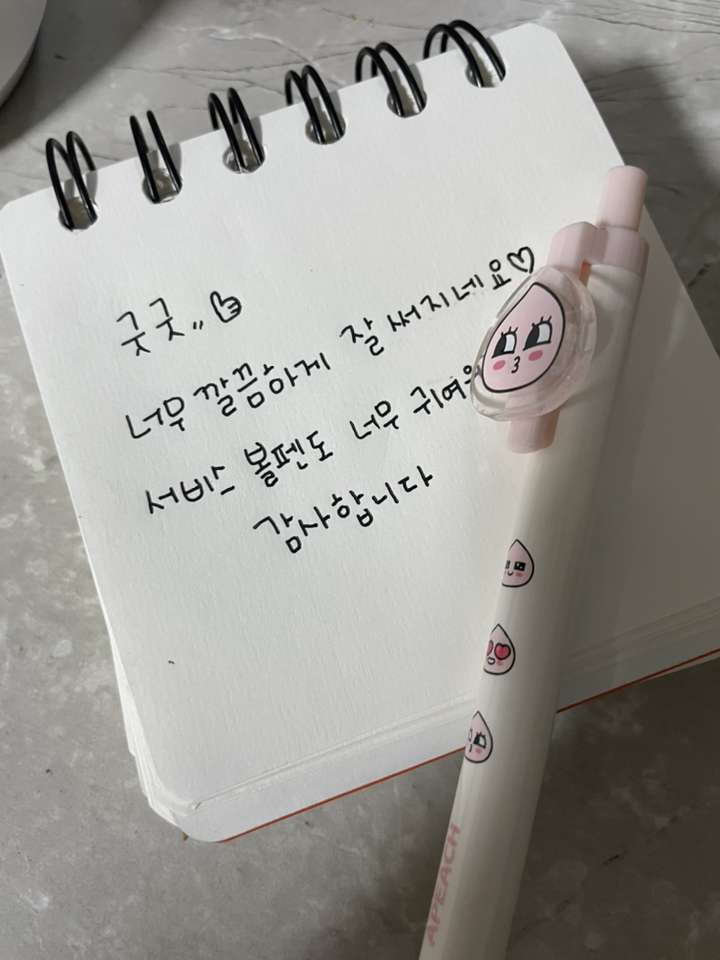 굿굿,, 👍
너무 깔끔하게 잘 써지네요♡
서비스 볼펜도 너무
감사합니다
APEACH